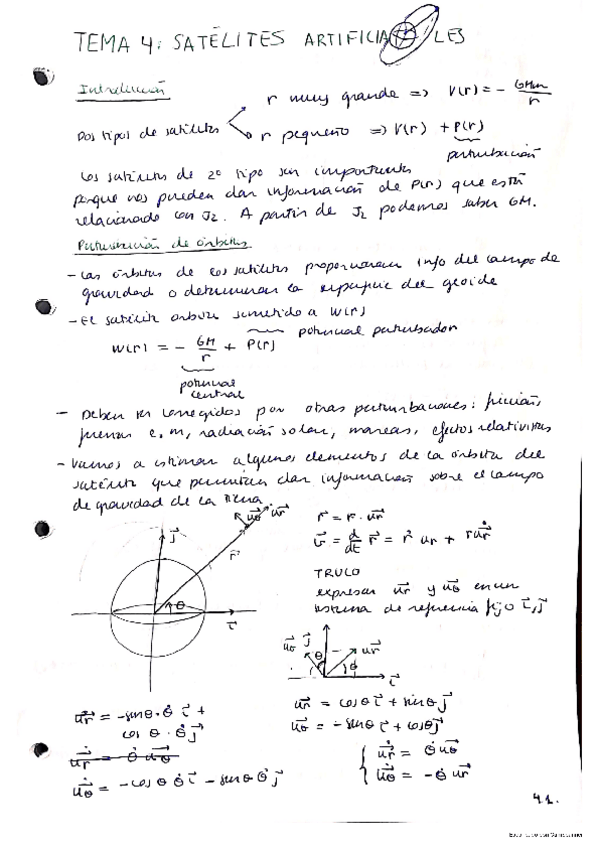 TEMA 4: SATÉLITES ARTIFICIALES
Introducción
r muy grande => V(r) = - GMm/r
Dos tipos de satélites
r pequeño => V(r) + P(r)
perturbación
Los satélites de 2º tipo son importantes
porque nos pueden dar información de P(r) que está
relacionado con J2. A partir de J2 podemos saber GM.
Perturbación de órbitas
- Las órbitas de los satélites proporcionan info del campo de
gravedad o determinan la superficie del geoide
- El satélite orbita sometido a W(r)
W(r) = - GM/r + P(r) potencial perturbador
potencial
central
- Deben ser corregidos por otras perturbaciones: fricción,
fuerzas e.m, radiación solar, mareas, efectos relativistas
- Vamos a estimar algunos elementos de la órbita del
satélite que permitan dar información sobre el campo
de gravedad de la tierra.
j⃗ r⃗ u⃗θ u⃗r θ i⃗
r⃗ = r · u⃗r
v⃗ = d/dt r⃗ = ṙ ur + r u̇⃗r
TRUCO
expresar u⃗r y u⃗θ en un
sistema de referencia fijo i⃗, j⃗
u⃗θ j⃗ θ u⃗r θ i⃗
u⃗r = cosθ i⃗ + sinθ j⃗
u⃗θ = -senθ i⃗ + cosθ j⃗
u̇⃗r = -senθ · θ̇ i⃗ +
cos θ · θ̇ j⃗
u̇⃗r = θ̇ u⃗θ
u̇⃗θ = -cos θ θ̇ i⃗ - senθ θ̇ j⃗
u̇⃗r = θ̇ u⃗θ
u̇⃗θ = -θ̇ u⃗r
4.1.